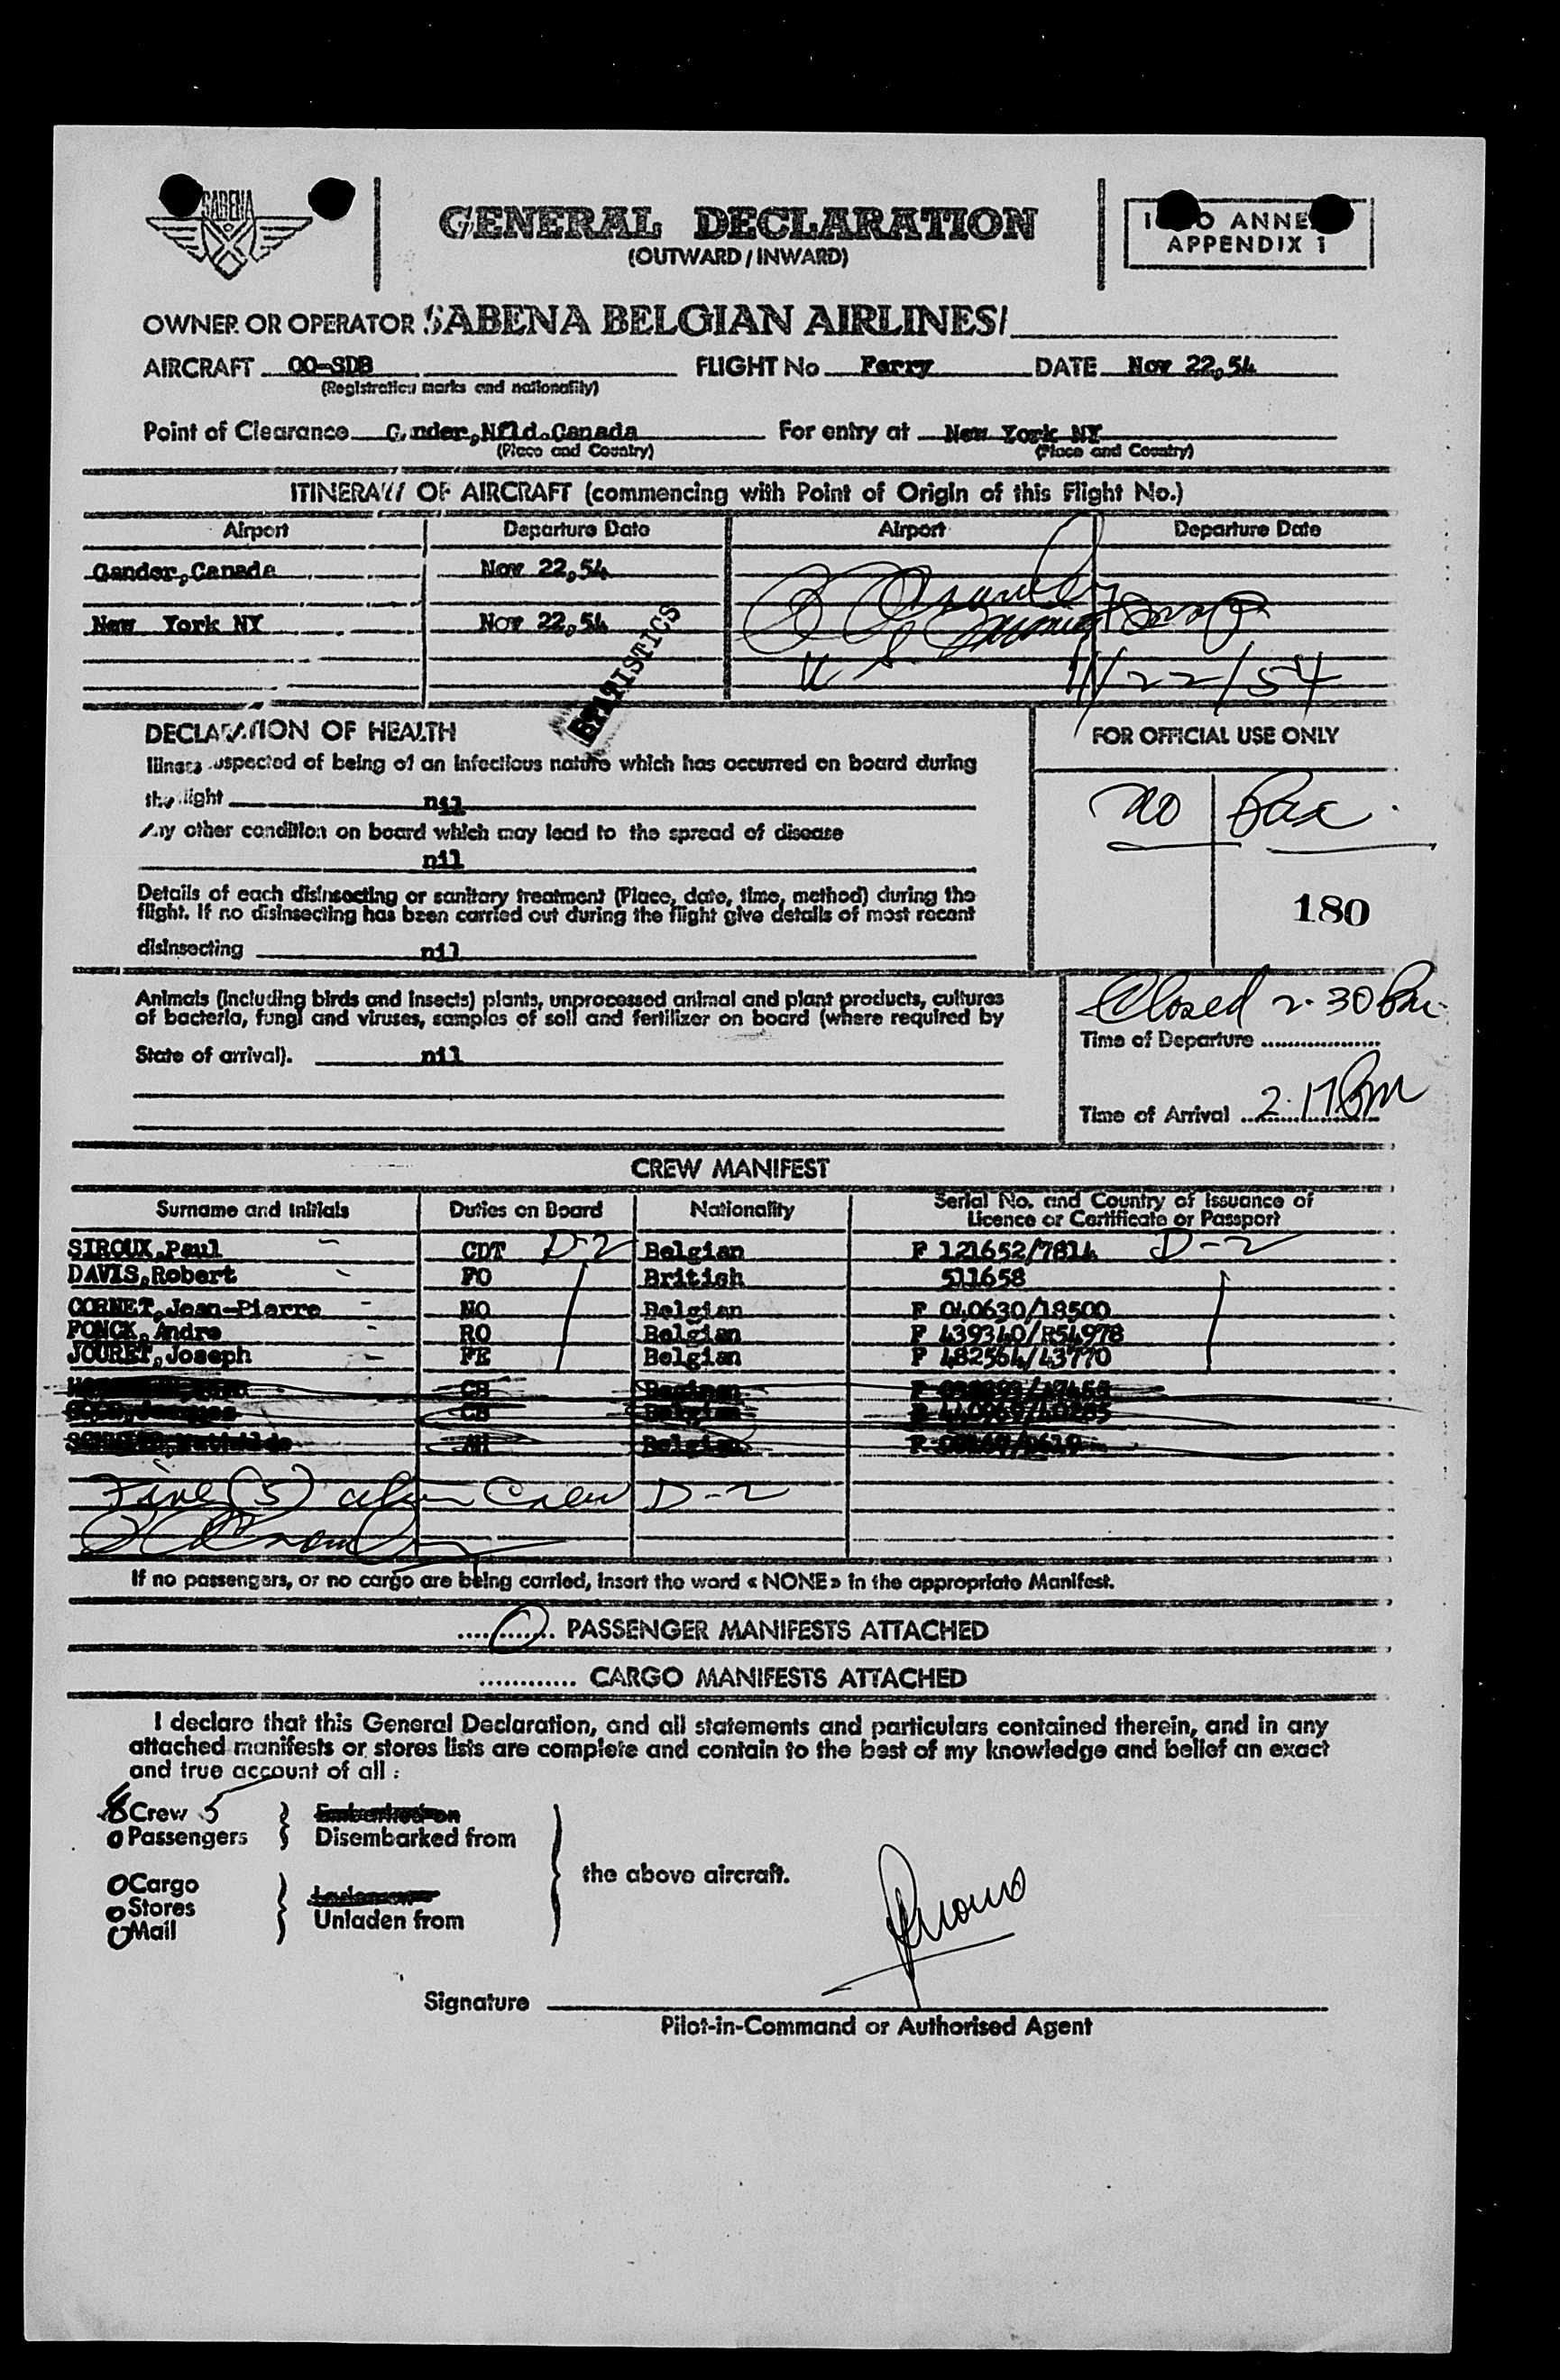 SABENA
GENERAL DECLARATION
(OUTWARD / INWARD)
O ANNE
APPENDIX 1
OWNER OR OPERATOR SABENA BELGIAN AIRLINES/
AIRCRAFT OO-SDB FLIGHT No Ferry DATE Nov 22,54
(Registration marks and nationality)
Point of Clearance Gander,Nfld.Canada For entry at New York NY
(Place and Country) (Place and Country)
ITINERARY OF AIRCRAFT (commencing with Point of Origin of this Flight No.)
Airport Departure Date Airport Departure Date
Gander,Canada Nov 22,54
New York NY Nov 22,54
U S 11/22/54
STATISTICS
DECLARATION OF HEALTH FOR OFFICIAL USE ONLY
Illness suspected of being of an infectious nature which has occurred on board during
the flight nil
no Pax.
Any other condition on board which may lead to the spread of disease
nil
Details of each disinsecting or sanitary treatment (Place, date, time, method) during the
flight. If no disinsecting has been carried out during the flight give details of most recent
180
disinsecting nil
Animals (including birds and insects) plants, unprocessed animal and plant products, cultures
of bacteria, fungi and viruses, samples of soil and fertilizer on board (where required by
State of arrival). nil
Closed 2:30 Pm
Time of Departure
Time of Arrival 2:17 Pm
CREW MANIFEST
Surname and Initials Duties on Board Nationality Serial No. and Country of Issuance of
Licence or Certificate or Passport
SIROUX,Paul - CDT D-2 Belgian F 121652/7814 D-2
DAVIS,Robert - FO British 511658
CORNET,Jean-Pierre - NO Belgian F 040630/18500
PONCK,Andre - RO Belgian F 439340/R54978
JOURET,Joseph - FE Belgian F 482564/43770
CH
CH Belgian
Belgian
Five (5) alien Crew D-2
If no passengers, or no cargo are being carried, insert the word « NONE » in the appropriate Manifest.
0 PASSENGER MANIFESTS ATTACHED
............ CARGO MANIFESTS ATTACHED
I declare that this General Declaration, and all statements and particulars contained therein, and in any
attached manifests or stores lists are complete and contain to the best of my knowledge and belief an exact
and true account of all :
Crew 5 Embarked on
0 Passengers Disembarked from
the above aircraft.
0 Cargo
0 Stores
0 Mail Unladen from
Signature
Pilot-in-Command or Authorised Agent